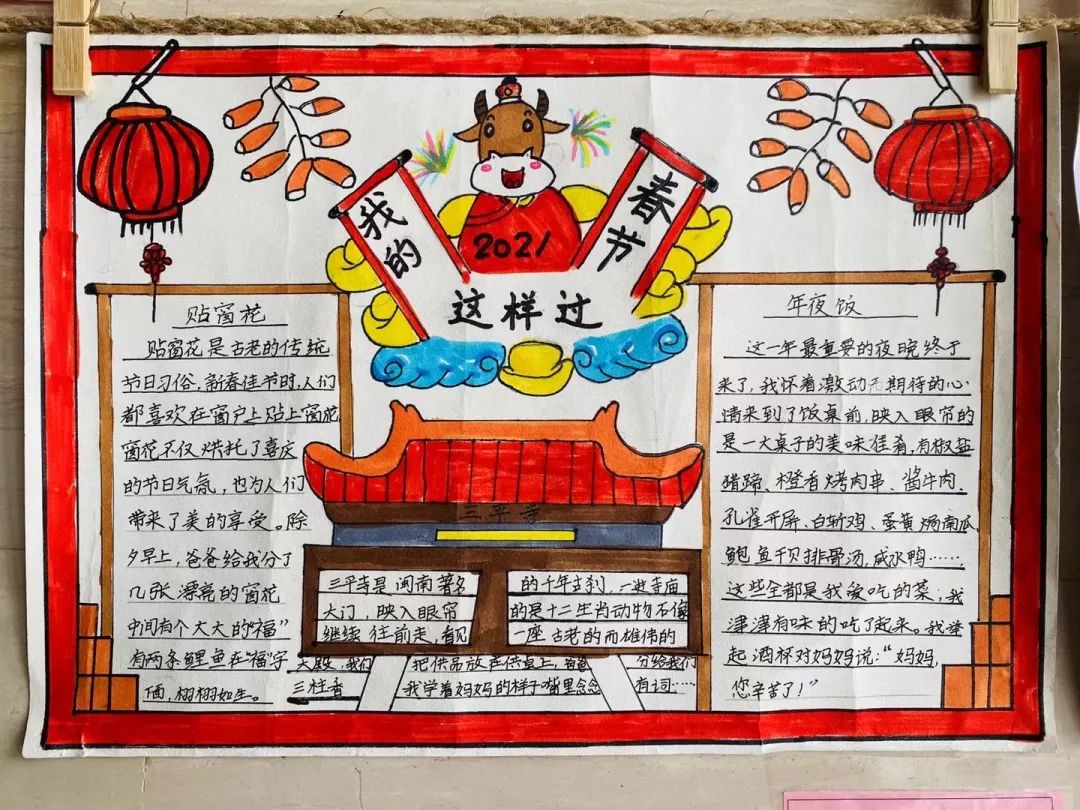 我的
春节
2021
这样过
贴窗花
贴窗花是古老的传统
节日习俗,新春佳节时,人们
都喜欢在窗户上贴上窗花
窗花不仅烘托了喜庆
的节日气氛,也为人们
带来了美的享受。除
夕早上,爸爸给我分了
几张漂亮的窗花
中间有个大大的“福”
有两条鲤鱼在“福”字
面,栩栩如生。
三平寺
三平寺是闽南著名
的千年古刹,一进寺庙
大门,映入眼帘
的是十二生肖动物石像
继续往前走,看见
一座古老的而雄伟的
大殿,我们
把供品放在供桌上,爸爸
分给我们
三柱香
我学着妈妈的样子嘴里念念
有词……
年夜饭
这一年最重要的夜晚终于
来了,我怀着激动期待的心
情来到了饭桌前,映入眼帘的
是一大桌子的美味佳肴,有椒盐
猪蹄、橙香烤肉串、酱牛肉、
孔雀开屏、白斩鸡、蛋黄焗南瓜、
鲍鱼干贝排骨汤,咸水鸭……
这些全都是我爱吃的菜;我
津津有味的吃了起来。我举
起酒杯对妈妈说:“妈妈,
您辛苦了!”